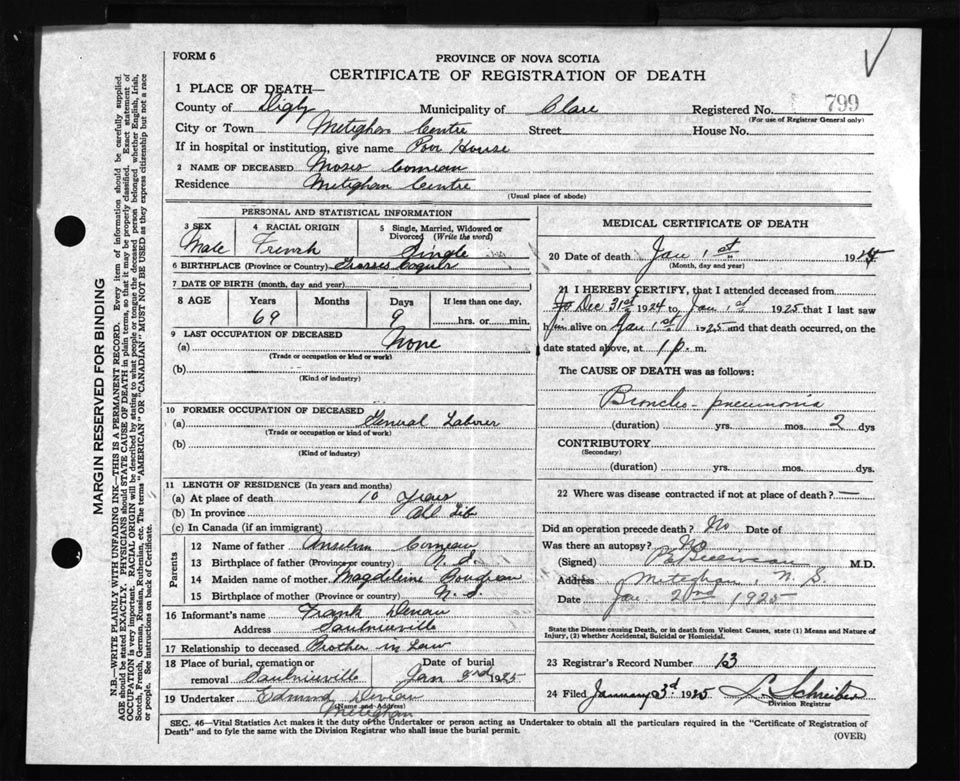 FORM 6
PROVINCE OF NOVA SCOTIA
CERTIFICATE OF REGISTRATION OF DEATH
799
1 PLACE OF DEATH—
County of Digby Municipality of Clare Registered No.
(For use of Registrar General only)
City or Town Meteghan Centre Street House No.
If in hospital or institution, give name Poor House
2 NAME OF DECEASED Moses Comeau
Residence Meteghan Centre
(Usual place of abode)
PERSONAL AND STATISTICAL INFORMATION
3 SEX Male
4 RACIAL ORIGIN French
5 Single, Married, Widowed or Divorced (Write the word) Single
6 BIRTHPLACE (Province or Country) Grosses Coques
7 DATE OF BIRTH (month, day and year)
8 AGE Years Months Days If less than one day,
69 9 hrs. or min.
9 LAST OCCUPATION OF DECEASED
(a) None
(Trade or occupation or kind or work)
(b)
(Kind of industry)
10 FORMER OCCUPATION OF DECEASED
(a) General Laborer
(Trade or occupation or kind of work)
(b)
(Kind of industry)
11 LENGTH OF RESIDENCE (In years and months)
(a) At place of death 10 years
(b) In province All
(c) In Canada (if an immigrant)
Parents
12 Name of father Anselm Comeau
13 Birthplace of father (Province or country) N. S.
14 Maiden name of mother Magdeleine
15 Birthplace of mother (Province or country) N. S.
16 Informant's name Frank
Address Saulnierville
17 Relationship to deceased Brother in Law
18 Place of burial, cremation or removal Saulnierville
Date of burial Jan 3rd 1925
19 Undertaker Edmund
(Name and Address)
Meteghan
MEDICAL CERTIFICATE OF DEATH
20 Date of death Jan 1st
(Month, day and year)
21 I HEREBY CERTIFY, that I attended deceased from
to Dec 31st 1924 to Jan 1st 1925 that I last saw
him alive on Jan 1st 1925 and that death occurred, on
date stated above, at 1 p. m.
The CAUSE OF DEATH was as follows:
Broncho-pneumonia
(duration) yrs. mos. 2 dys
CONTRIBUTORY
(Secondary)
(duration) yrs. mos. dys.
22 Where was disease contracted if not at place of death? —
Did an operation precede death? No Date of
Was there an autopsy? No
(Signed) M.D.
Address Meteghan, N. S.
Date Jan. 2nd 1925
State the Disease causing Death, or in death from Violent Causes, state (1) Means and Nature of
Injury, (2) whether Accidental, Suicidal or Homicidal.
23 Registrar's Record Number 13
24 Filed January 3d 1925 L. Schreiber
Division Registrar
SEC. 46—Vital Statistics Act makes it the duty of the Undertaker or person acting as Undertaker to obtain all the particulars required in the "Certificate of Registration of
Death" and to fyle the same with the Division Registrar who shall issue the burial permit.
(OVER)
MARGIN RESERVED FOR BINDING
N.B.—WRITE PLAINLY WITH UNFADING INK—THIS IS A PERMANENT RECORD. Every item of information should be carefully supplied.
AGE should be stated EXACTLY. PHYSICIANS should STATE CAUSE OF DEATH in plain terms, so that it may be properly classified. Exact statement of
OCCUPATION is very important. RACIAL ORIGIN will be described by stating to what people or tongue the deceased person belonged whether English, Irish,
Scotch, French, German, Russian, Ruthenian, etc. The terms "AMERICAN" OR "CANADIAN" MUST NOT BE USED as they express citizenship but not a race
or people. See instructions on back of Certificate.